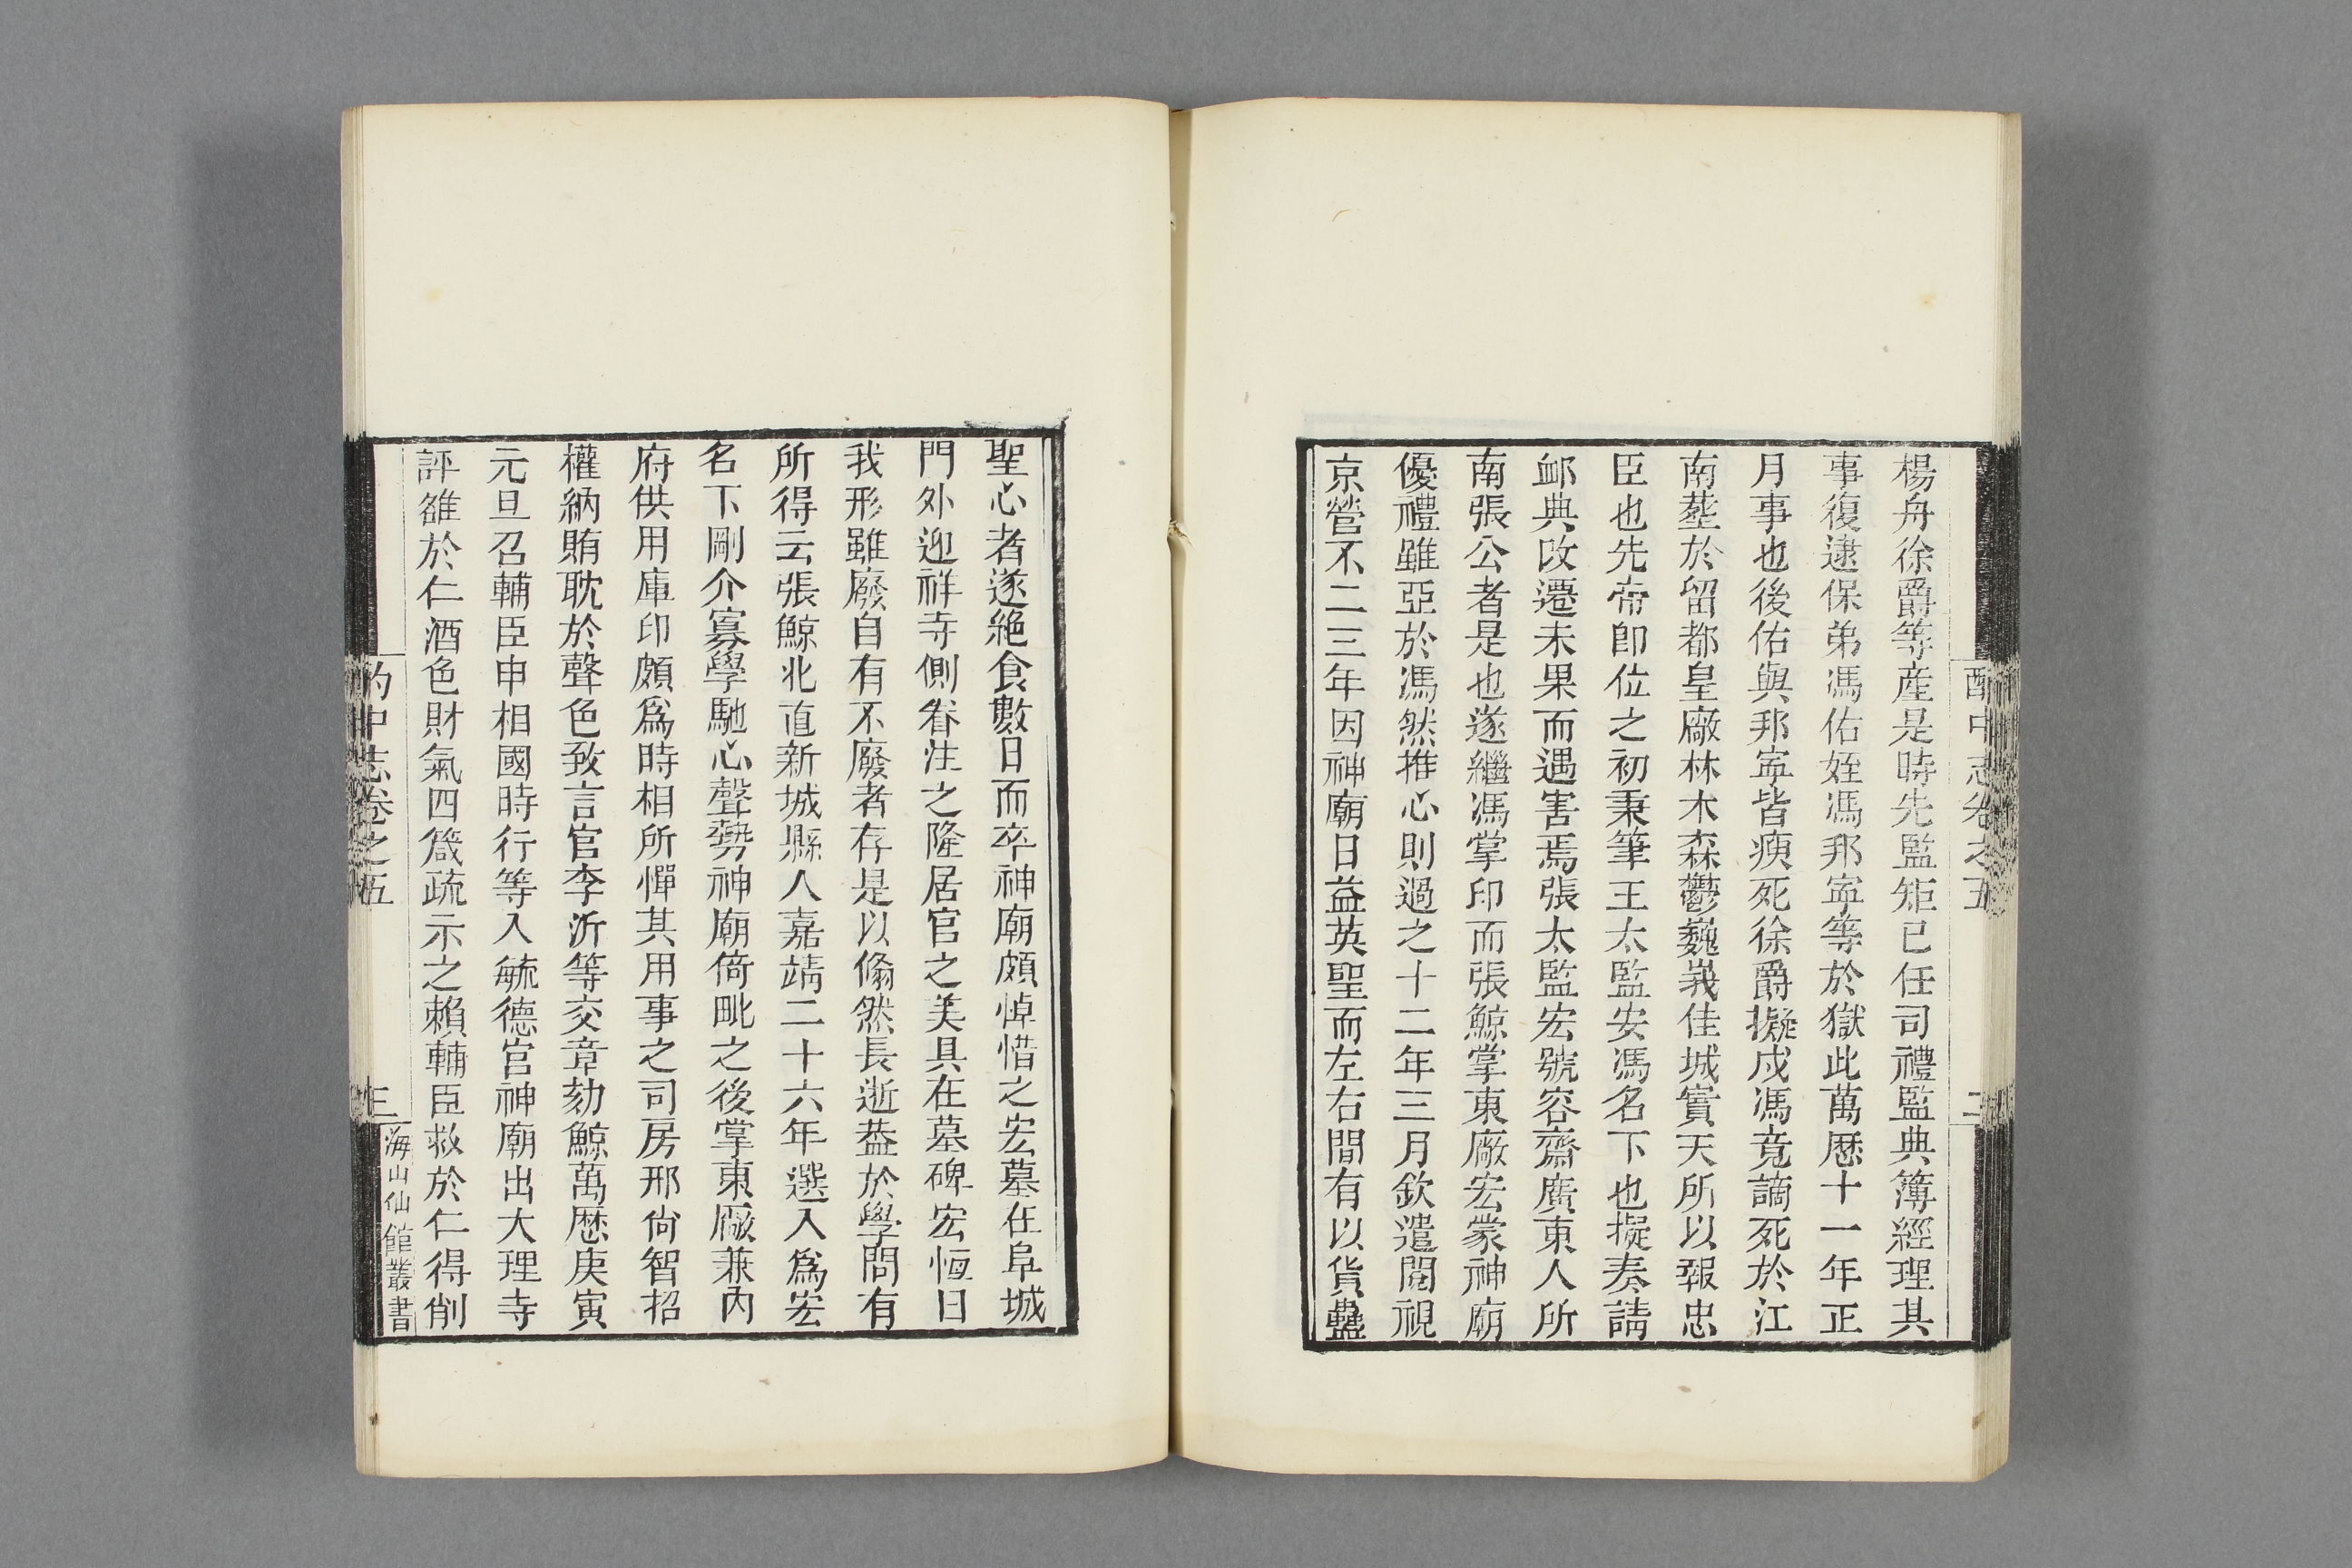 楊舟徐爵等產是時先監矩已任司禮監典簿經理其
事復逮保弟馮佑姪馮邦寧等於獄此萬厯十一年正
月事也後佑與邦寧皆瘐死徐爵擬戍馮竟謫死於江
南塟於留都皇廠林木森鬱巍峩佳城實天所以報忠
臣也先帝卽位之初秉筆王太監安馮名下也擬奏請
卹典改遷未果而遇害焉張太監宏號容齋廣東人所
南張公者是也遂繼馮掌印而張鯨掌東廠宏蒙神廟
優禮雖亞於馮然推心則過之十二年三月欽遣閱視
京營不二三年因神廟日益英聖而左右間有以貨蠱
酌中志卷之五
二
聖心者遂絶食數日而卒神廟頗悼惜之宏墓在阜城
門外迎祥寺側眷注之隆居官之美具在墓碑宏恆曰
我形雖廢自有不廢者存是以翛然長逝葢於學問有
所得云張鯨北直新城縣人嘉靖二十六年選入爲宏
名下剛介寡學馳心聲勢神廟倚毗之後掌東廠兼內
府供用庫印頗爲時相所憚其用事之司房邢尙智招
權納賄耽於聲色致言官李沂等交章劾鯨萬厯庚寅
元旦召輔臣申相國時行等入毓德宮神廟出大理寺
評雒於仁酒色財氣四箴疏示之賴輔臣救於仁得削
酌中志卷之五
三
海山仙館叢書